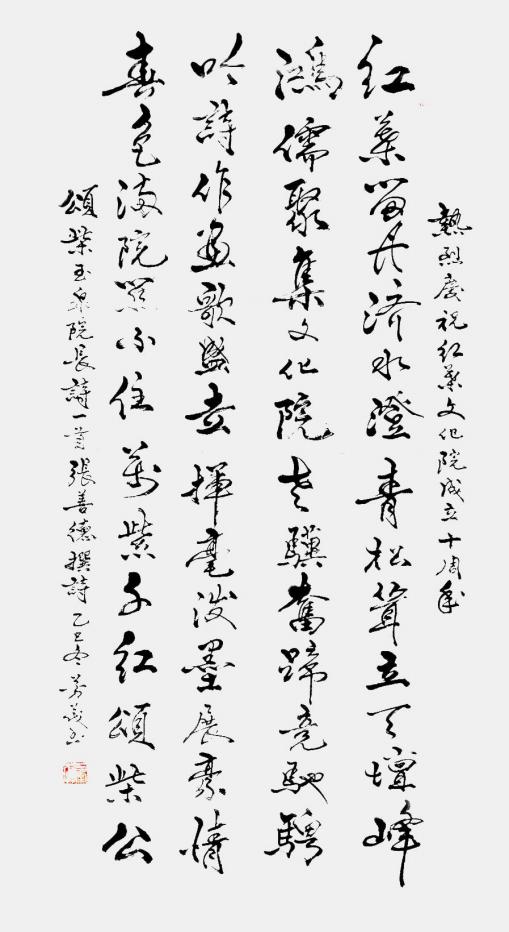 熱烈慶祝红葉文化院成立十周年
红葉留丹济水澄青松聳立天壇峰
鴻儒聚集文化院老驥奮蹄竞馳騁
吟詩作畫歌盛世揮毫泼墨展豪情
春色滿院關不住萬紫千红頌柴公
頌柴玉泉院長詩一首張善德撰詩乙巳冬